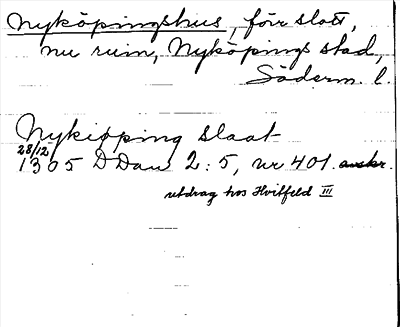 Nyköpingshus, förr slott,
nu ruin, Nyköpings stad,
Söderm. l.
Nykiøping slaat
28/12
1305 DDan 2:5, nr 401. avskr.
utdrag hos Hvitfeld III